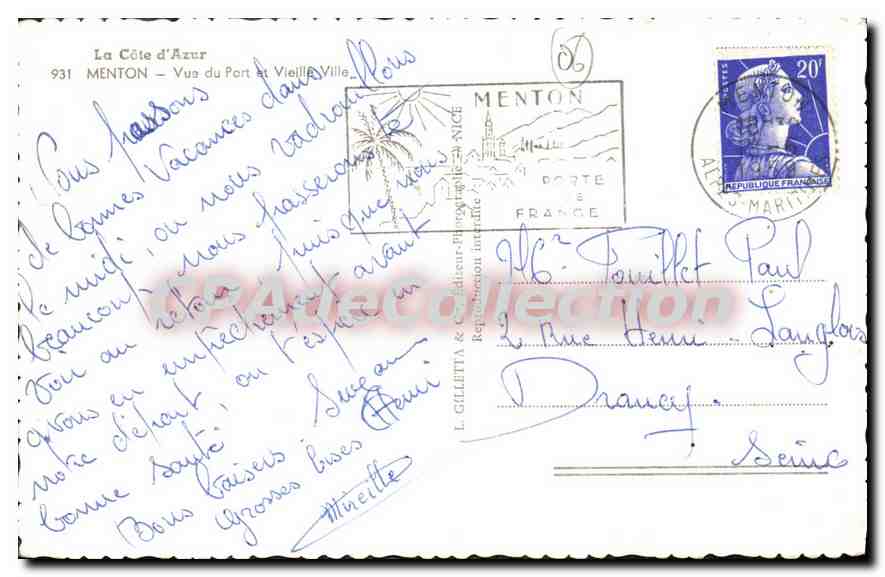 La Côte d'Azur
931 MENTON — Vue du Port et Vieille Ville
Nous passons
de bonnes vacances dans
le midi, ou nous vadrouillons
beaucoup, nous passerons te
voir au retour puisque nous
avons eu empêchement avant
notre départ, on t'espère en
bonne santé,
Suzanne
Bons baisers
Henri
Grosses bises
Mireille
L. GILLETTA & Cie, Editeur-Photographe - NICE
Reproduction interdite
MENTON
PORTE
DE
FRANCE
MENTON
ALPES-MARITIMES
POSTES
20F
REPUBLIQUE FRANÇAISE
Mr Pouillet Paul
2 Rue Henri Langlois
Drancy
Seine
CPAdeCollection